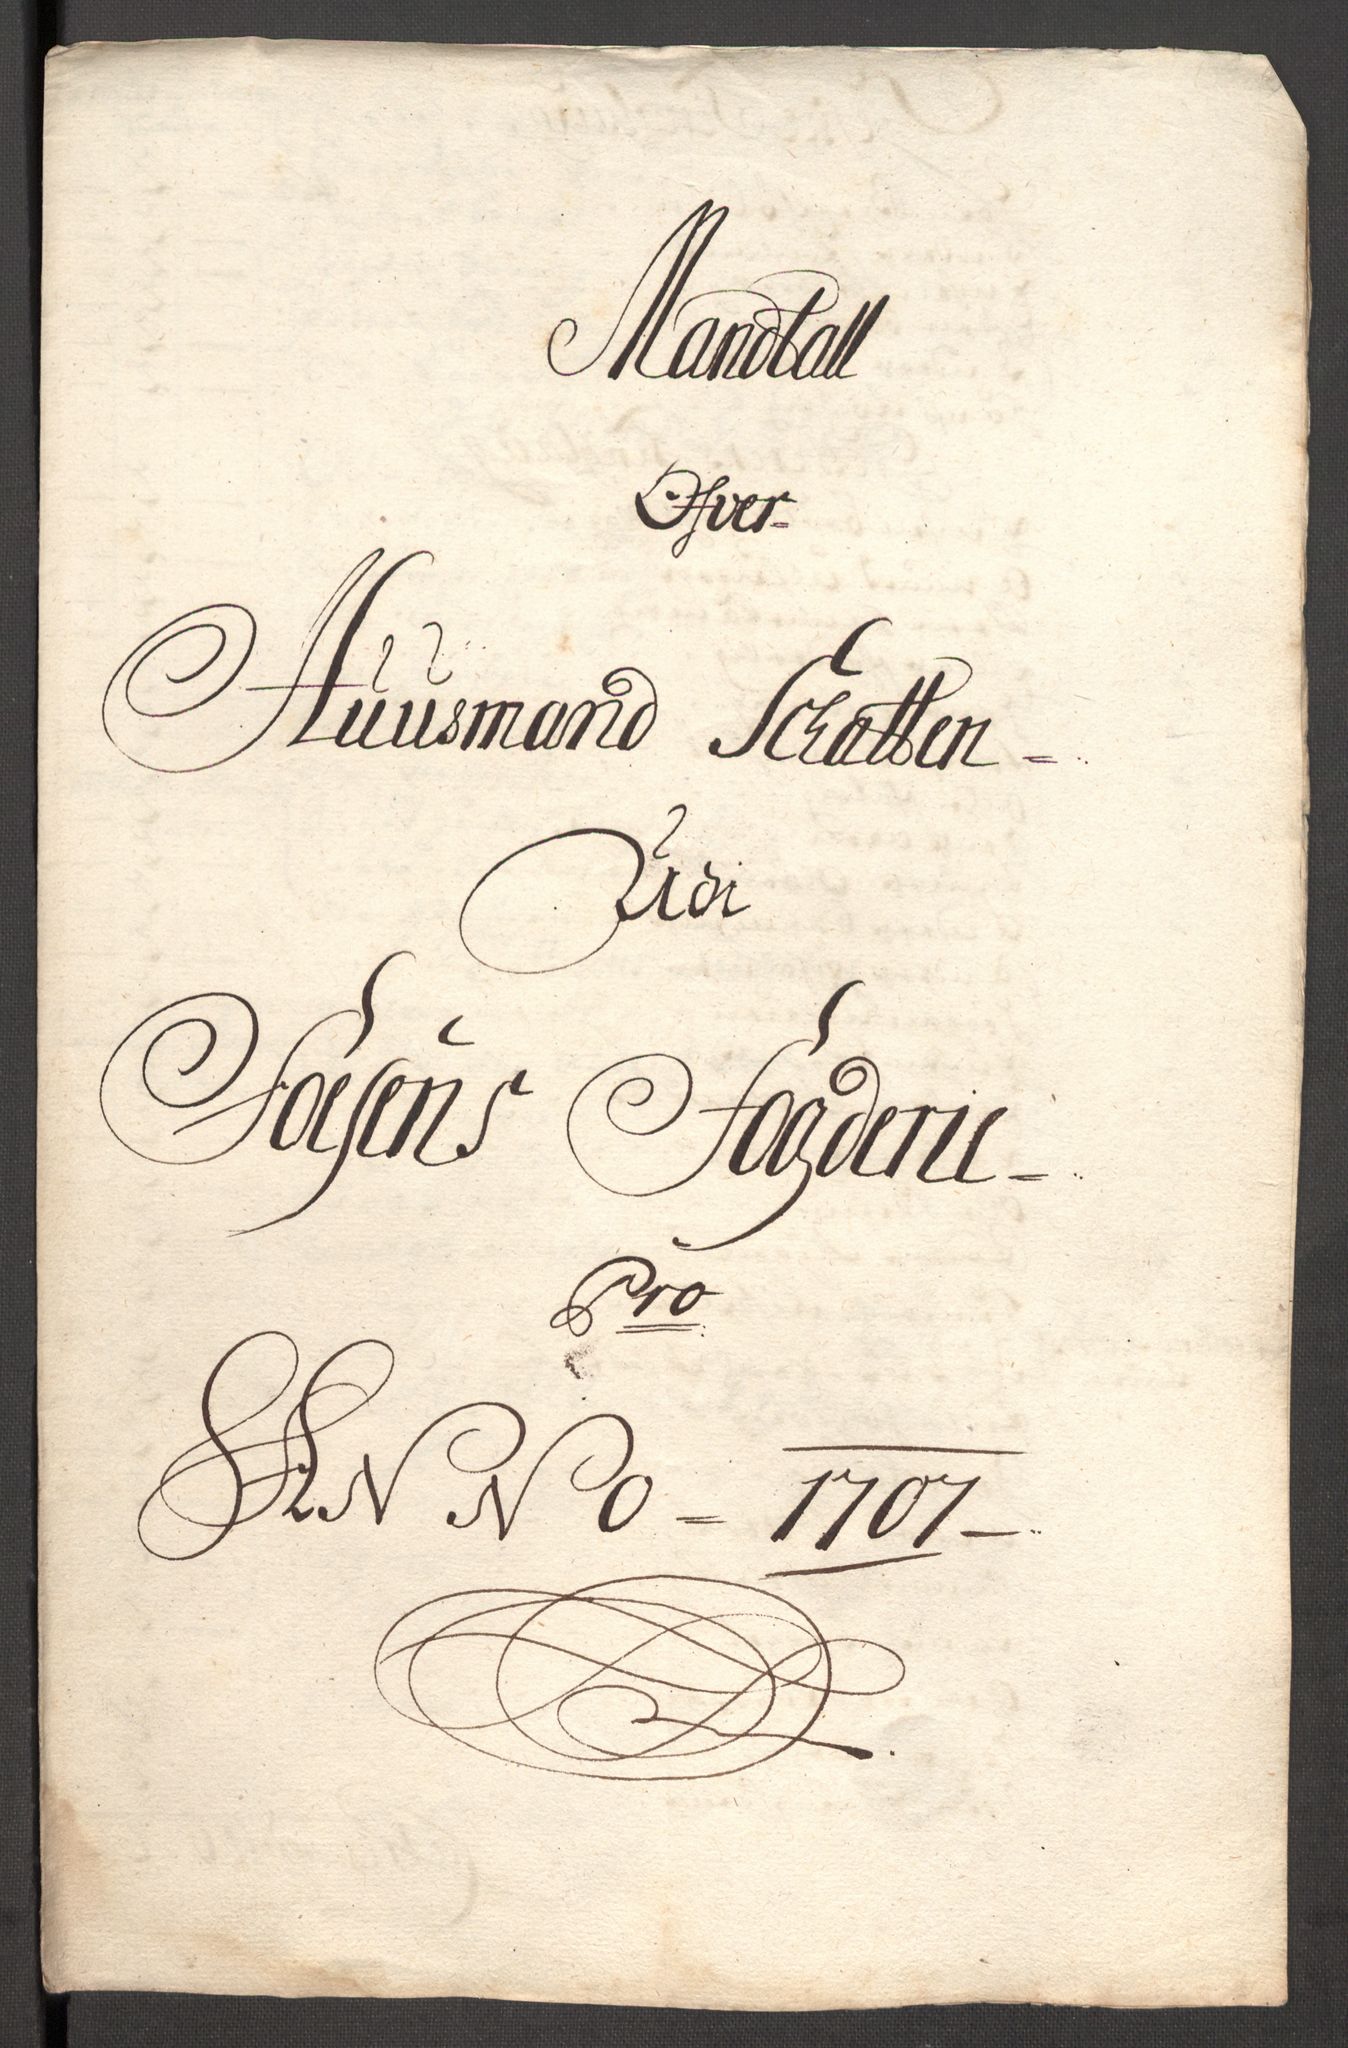 Mandtall
Ofver
Huusmand Schatten
Udi
Fosens Fogderie
Pro
ANNO 1707